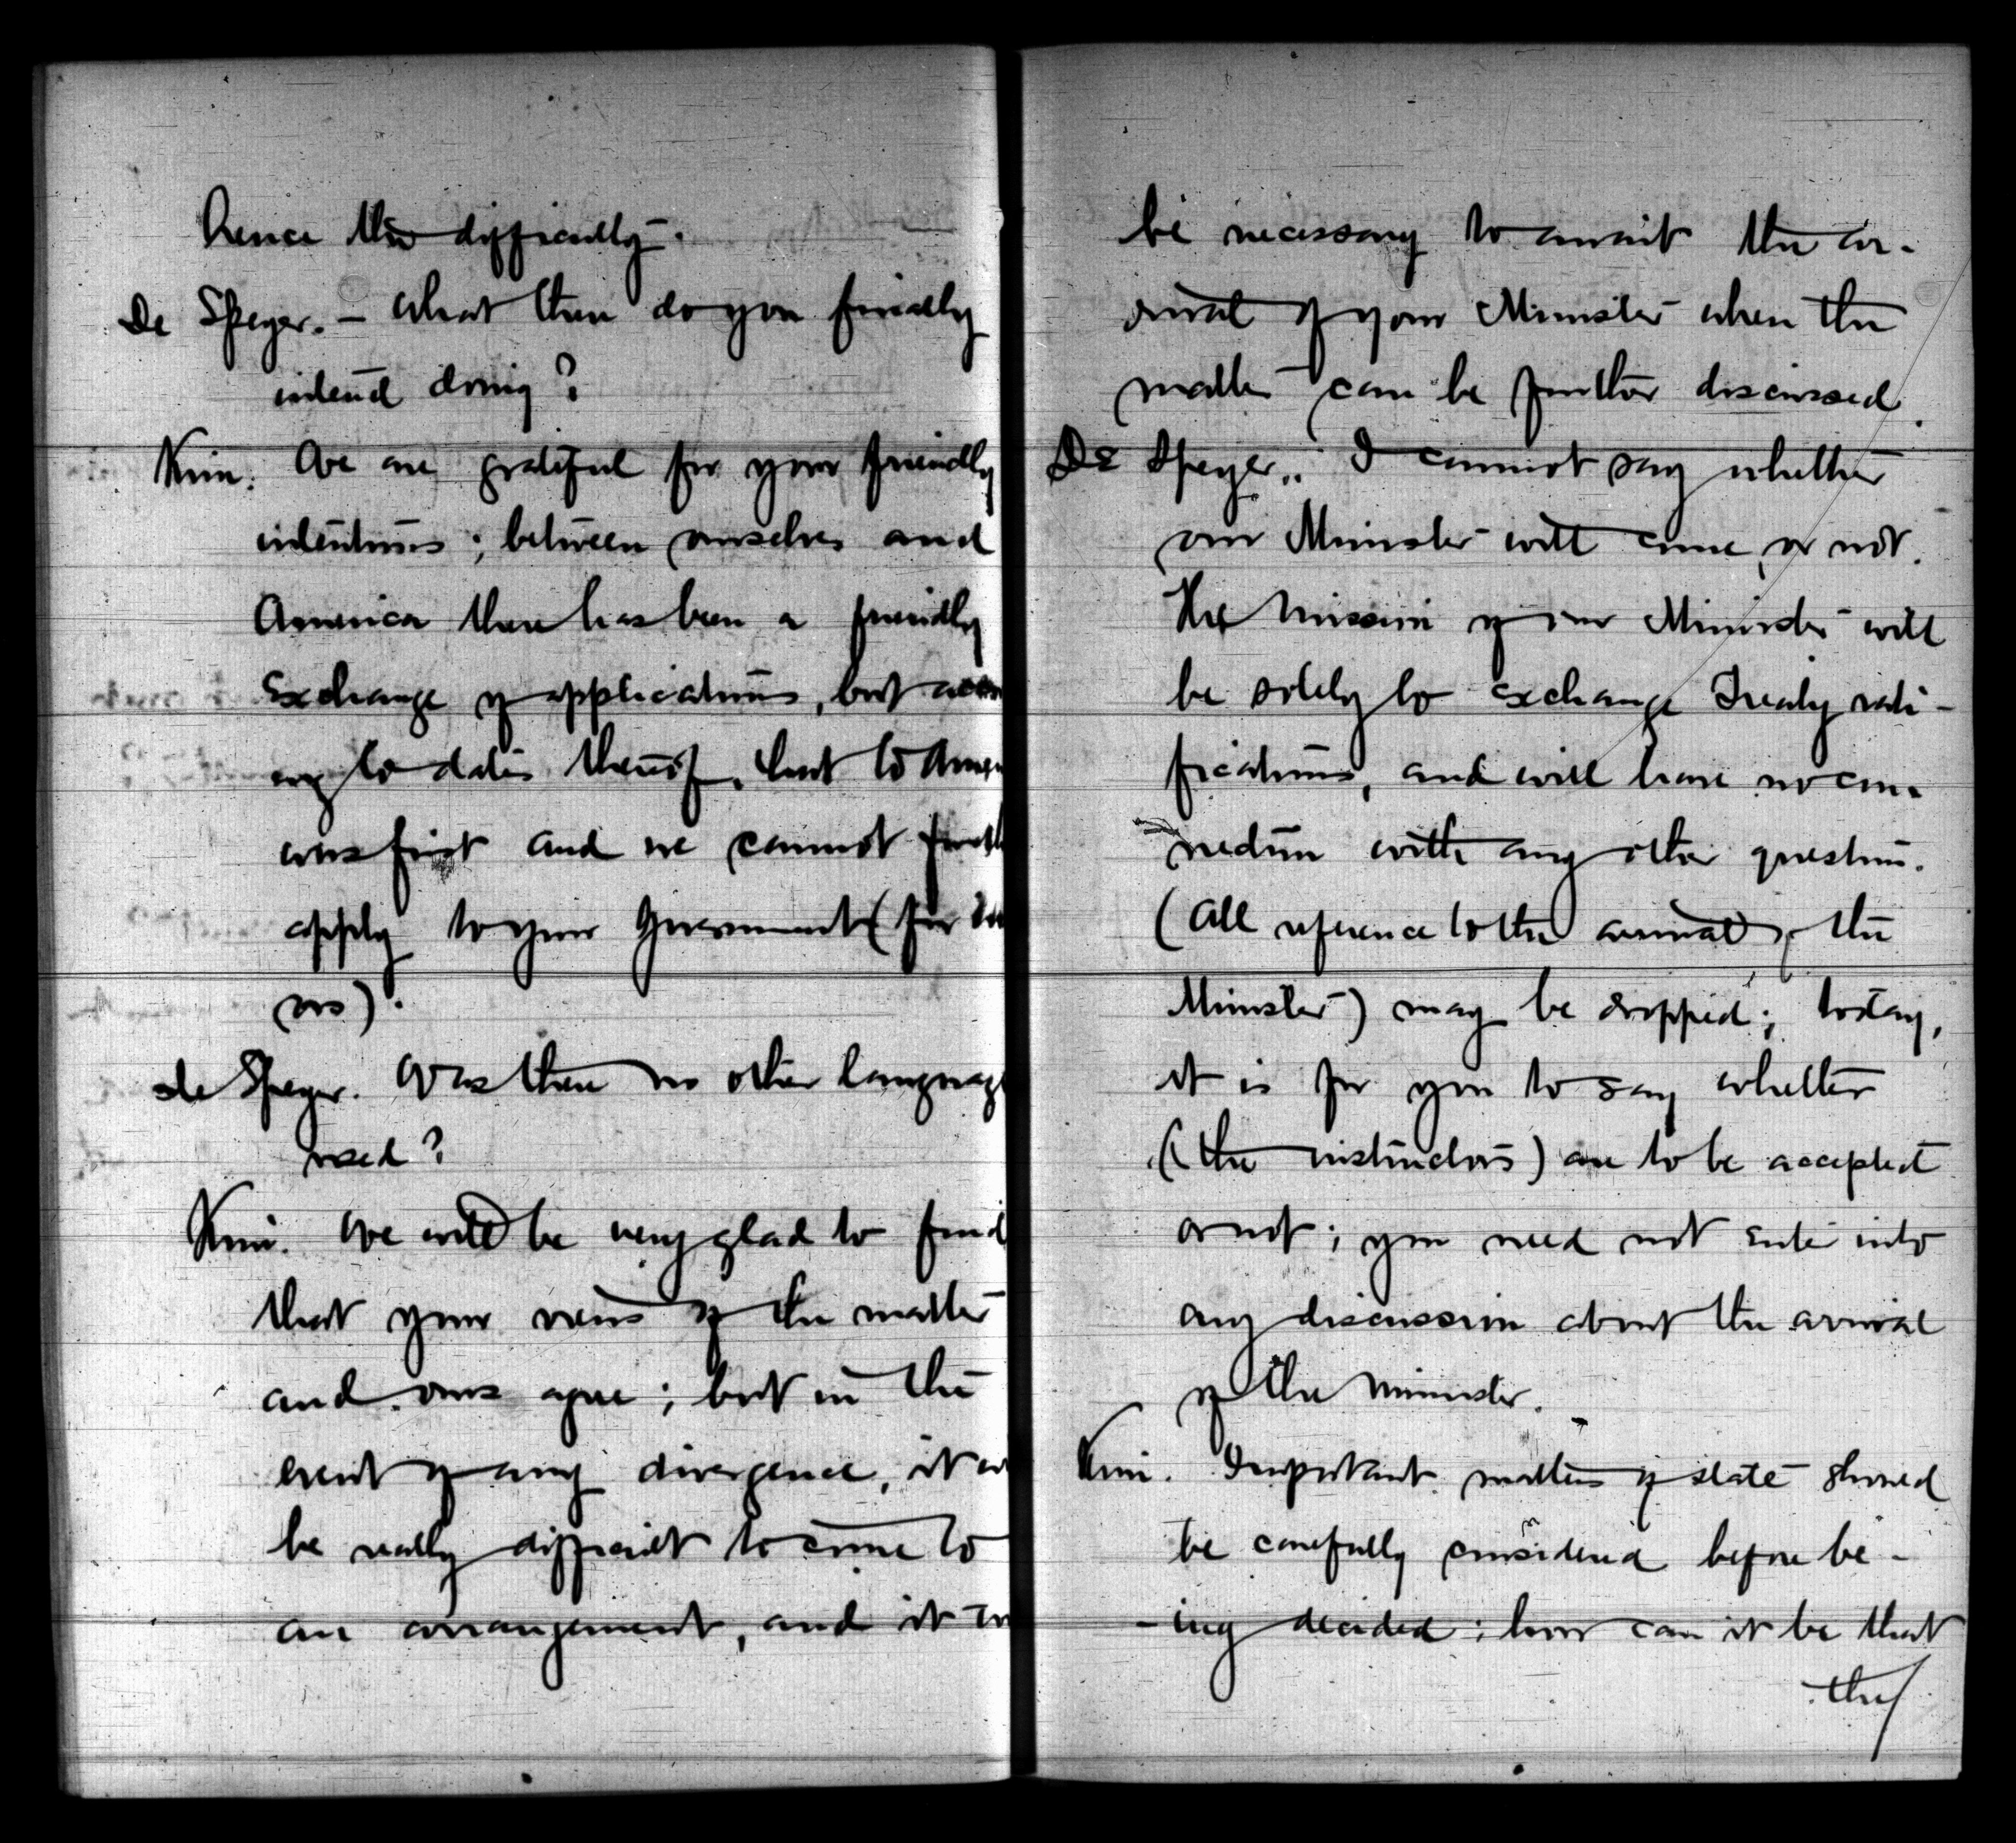 hence the difficulty.
De Speyer. – What then do you finally
intend doing?
Kim. We are grateful for your friendly
intentions; between ourselves and
America there has been a friendly
exchange of applications, but
to dates thereof, that to
was first and we cannot
apply to your Government (for
us).
de Speyer. Was there no other language
used?
Kim. We will be very glad to find
that your views of the matter
and ours agree; but in the
event of any divergence, it
be really difficult to come to
an arrangement, and it
be necessary to await the ar-
rival of your Minister when the
matter can be further discussed.
De Speyer.. I cannot say whether
our Minister will come, or not.
The Mission of our Minister will
be solely to exchange Treaty rati-
fications, and will have no con-
nection with any other question.
(All reference to the arrival of the
Minister) may be dropped; today,
it is for you to say whether
(the instructors) are to be accepted
or not; you need not enter into
any discussion about the arrival
of the Minister.
Kim. Important matters of state should
be carefully considered before be-
-ing decided; how can it be that
they